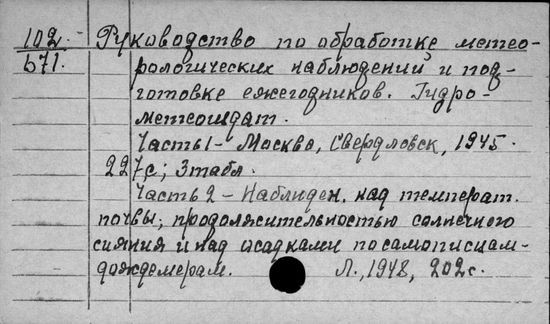 102. Руководство по обработке метео-
b71. рологических наблюдений и под-
готовке ежегодников. Гидро-
метеоиздат.
Часть 1 - Москва, Свердловск, 1945.
227 с; 3 табл.
Часть 2 - Наблюден. над температ.
почвы, продолжительностью солнечного
сияния и над осадками по самописцам-
дождемерам. Л., 1948, 202 с.